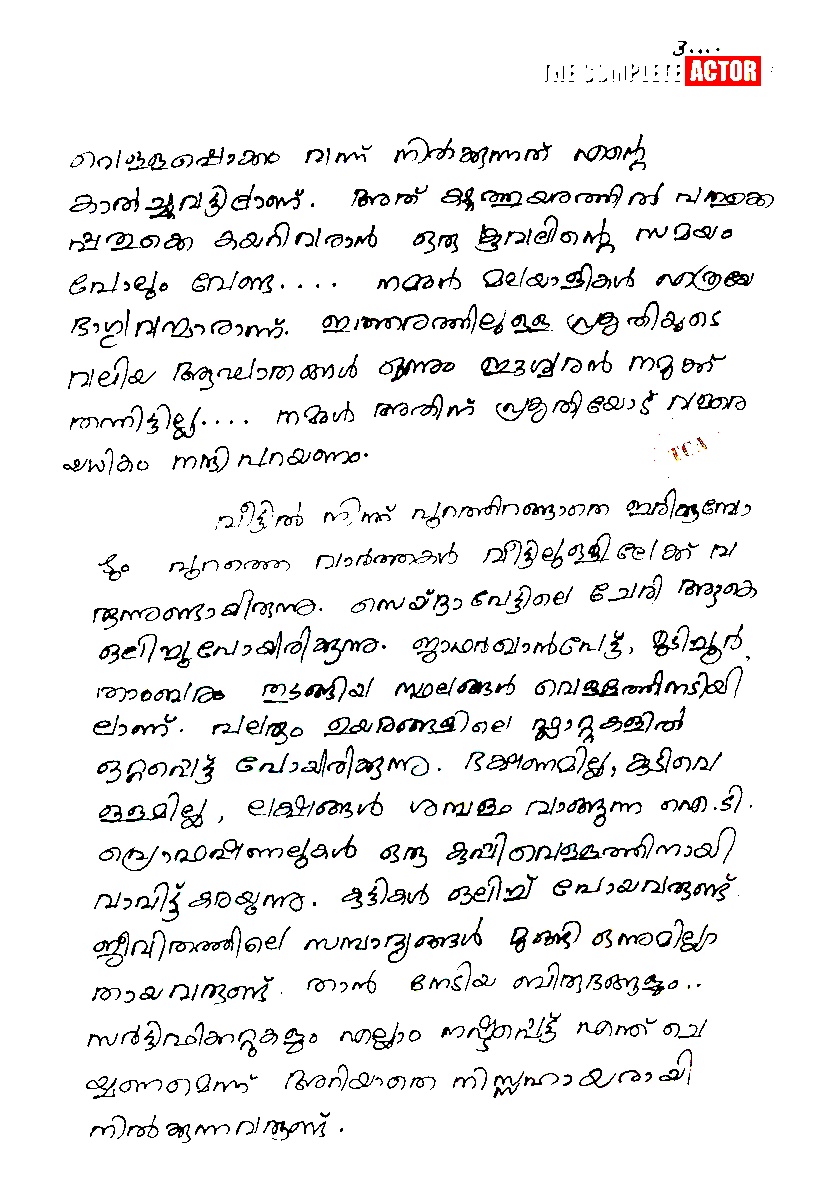 3....
THE COMPLETE ACTOR
വെള്ളപ്പൊക്കം വന്ന് നിൽക്കുന്നത് എന്റെ
കാൽച്ചുവട്ടിലാണ്. അത് കുത്തുയരത്തിൽ
കയറിവരാൻ ഒരു മൂവലിന്റെ സമയം
പോലും വേണ്ട.... നമ്മൾ മലയാളികൾ എത്രയേ
ഭാഗ്യവന്മാരാണ്. ഇത്തരത്തിലുള്ള പ്രകൃതിയുടെ
വലിയ ആഘാതങ്ങൾ ഒന്നും ഈശ്വരൻ നമുക്ക്
തന്നിട്ടില്ല.... നമ്മൾ അതിന് പ്രകൃതിയോട് വളരെ
യധികം നന്ദി പറയണം.
വീട്ടിൽ നിന്ന് പുറത്തിറങ്ങാതെ ഇരിക്കുമ്പോ
ഴും പുറത്തെ വാർത്തകൾ വീട്ടിലുള്ളിലേക്ക് വ
രുന്നുണ്ടായിരുന്നു. സെയ്ദാപേട്ടിലെ ചേരി ആകെ
ഒലിച്ചുപോയിരിക്കുന്നു. ജാഫർഖാൻപേട്ട്, മുടിച്ചൂർ,
താംബരം തുടങ്ങിയ സ്ഥലങ്ങൾ വെള്ളത്തിനടിയി
ലാണ്. പലരും ഉയരങ്ങളിലെ ഫ്ലാറ്റുകളിൽ
ഒറ്റപ്പെട്ട് പോയിരിക്കുന്നു. ഭക്ഷണമില്ല, കുടിവെ
ള്ളമില്ല, ലക്ഷങ്ങൾ ശമ്പളം വാങ്ങുന്ന ഐ.ടി.
പ്രൊഫഷണലുകൾ ഒരു കുപ്പിവെള്ളത്തിനായി
വാവിട്ട് കരയുന്നു. കുട്ടികൾ ഒലിച്ച് പോയവരുണ്ട്.
ജീവിതത്തിലെ സമ്പാദ്യങ്ങൾ മുങ്ങി ഒന്നുമില്ലാ
തായവരുണ്ട്. താൻ നേടിയ ബിരുദങ്ങളും..
സർട്ടിഫിക്കറ്റുകളും എല്ലാം നഷ്ടപ്പെട്ട് എന്ത് ചെ
യ്യണമെന്ന് അറിയാതെ നിസ്സഹായരായി
നിൽക്കുന്നവരുണ്ട്.